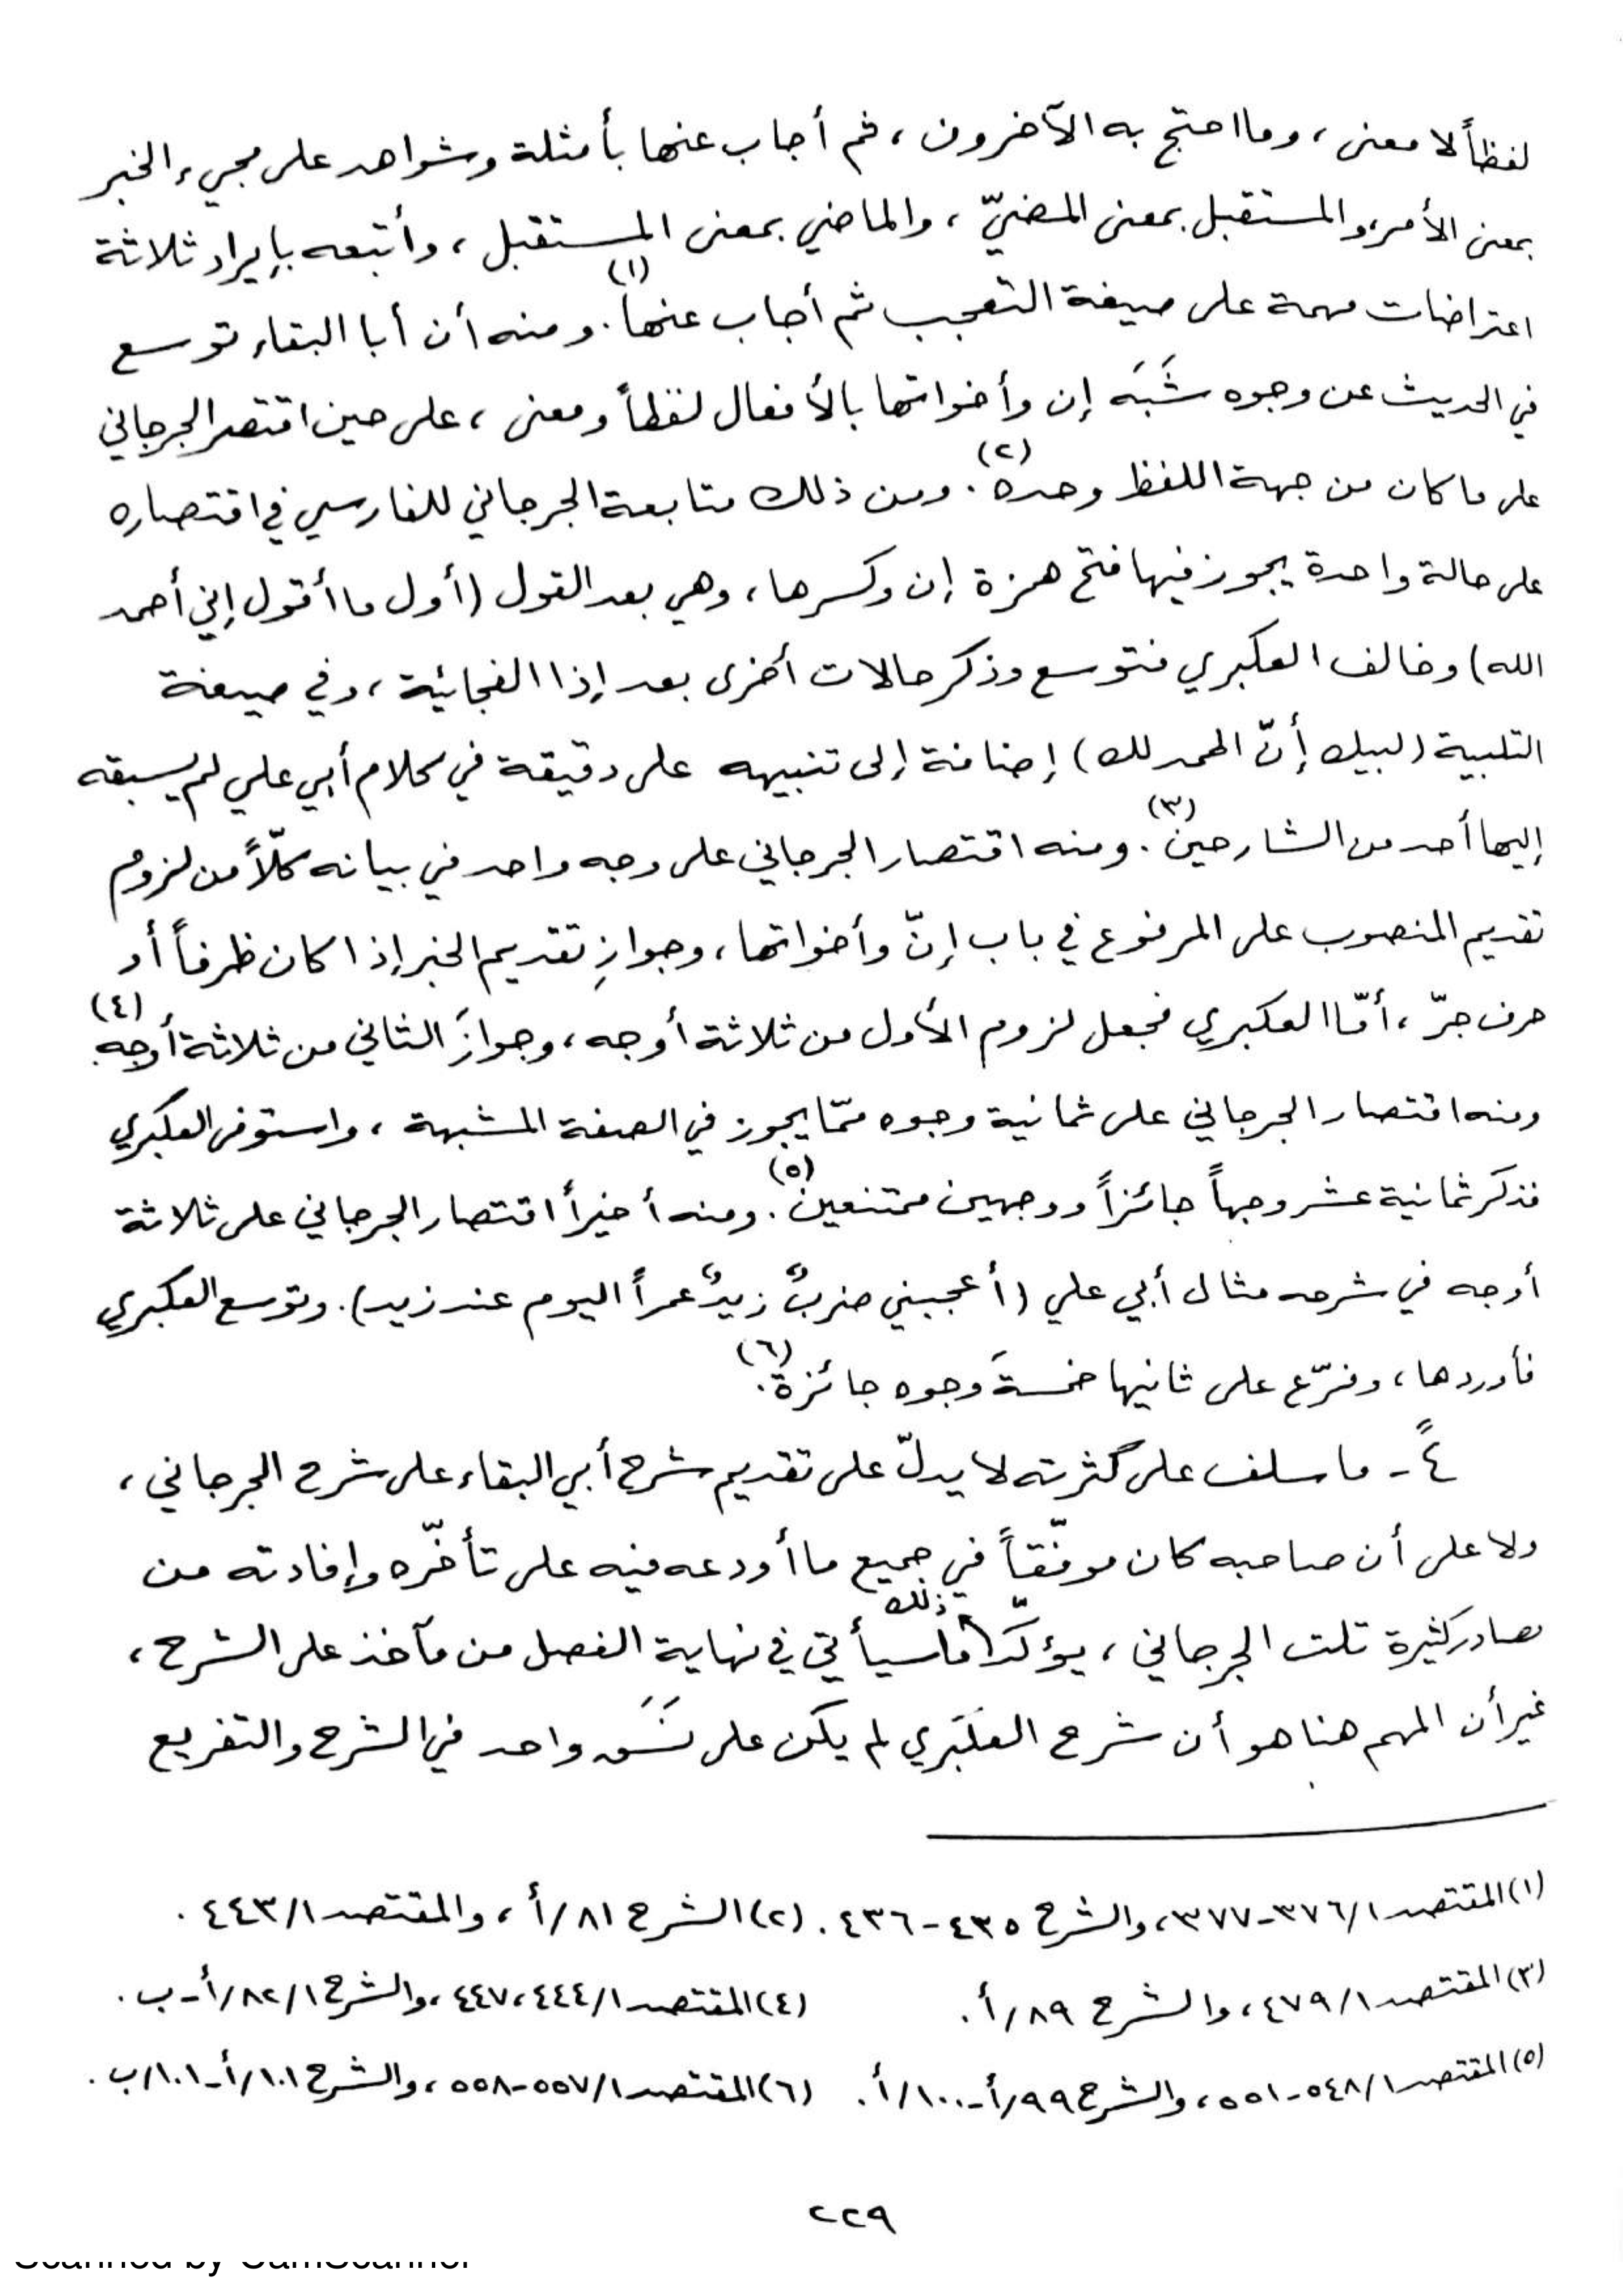 لفظاً لا معنى ، وما احتج به الآخرون ، ثم أجاب عنها بأمثلة وشواهد على مجيء الخبر
بمعنى الأمر، والمستقبل بمعنى المضيّ ، والماضي بمعنى المستقبل ، وأتبعه بإيراد ثلاثة
اعتراضات مهمة على صيغة التعجب ثم أجاب عنها(١). ومنه أن أبا البقاء توسع
في الحديث عن وجوه شَبَه إن وأخواتها بالأفعال لفظاً ومعنى ، على حين اقتصر الجرجاني
على ما كان من جهة اللفظ وحده(٢). ومن ذلك متابعة الجرجاني للفارسي في اقتصاره
على حالة واحدة يجوز فيها فتح همزة إن وكسرها ، وهي بعد القول (أول ما أقول إني أحمد
الله) وخالف العكبري فتوسع وذكر حالات أخرى بعد إذا الفجائية ، وفي صيغة
التلبية (لبيك إنّ الحمد لك) إضافة إلى تنبيهه على دقيقة في كلام أبي علي لم يسبقه
إليها أحد من الشارحين(٣). ومنه اقتصار الجرجاني على وجه واحد في بيانه كلّاً من لزوم
تقديم المنصوب على المرفوع في باب إنّ وأخواتها ، وجوازِ تقديم الخبر إذا كان ظرفاً أو
حرف جرّ ، أمّا العكبري فجعل لزوم الأول من ثلاثة أوجه ، وجوازَ الثاني من ثلاثة أوجه(٤).
ومنه اقتصار الجرجاني على ثمانية وجوه ممّا يجوز في الصفة المشبهة ، واستوفى العكبري
فذكر ثمانية عشر وجهاً جائزاً ووجهين ممتنعين(٥). ومنه أخيراً اقتصار الجرجاني على ثلاثة
أوجه في شرحه مثال أبي علي (أعجبني ضربٌ زيدٌ عمراً اليوم عند زيد). وتوسع العكبري
فأوردها ، وفرّع على ثانيها خمسةَ وجوه جائزة(٦).
٤ً - ما سلف على كثرته لا يدلّ على تقديم شرح أبي البقاء على شرح الجرجاني ،
ولا على أن صاحبه كان موفّقاً في جميع ما أودعه فيه على تأخّره وإفادته من
مصادر كثيرة تلت الجرجاني ، يؤكّد ذلك ما سيأتي في نهاية الفصل من مآخذ على الشرح ،
غير أن المهم هنا هو أن شرح العكبري لم يكن على نَسَق واحد في الشرح والتفريع
(١) المقتصد ٣٧٦/١-٣٧٧، والشرح ٤٣٥-٤٣٦ . (٢) الشرح ٨١/أ ، والمقتصد ٤٤٣/١ .
(٣) المقتصد ٤٧٩/١ ، والشرح ٨٩/أ . (٤) المقتصد ٤٤٤/١ ، ٤٤٧ ، والشرح ٨٢/١/أ-ب .
(٥) المقتصد ٥٤٨/١-٥٥١ ، والشرح ٩٩/أ-١٠٠/أ . (٦) المقتصد ٥٥٧/١-٥٥٨ ، والشرح ١٠١/أ-١٠١/ب .
٢٢٩
Scanned by CamScanner